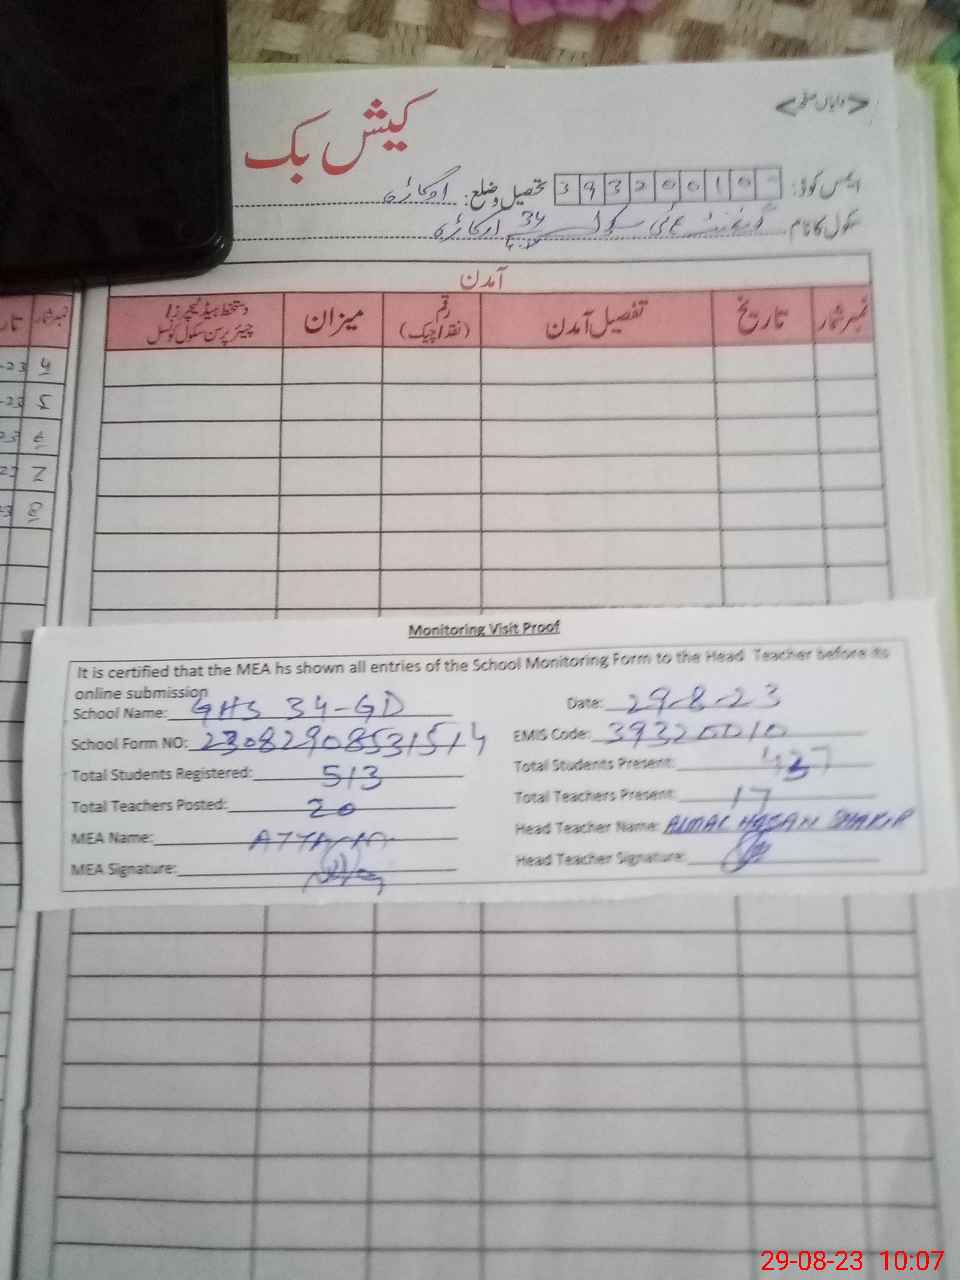 <دایاں صفحہ>
کیش بک
ایمس کوڈ: 3 9 3 2 0 0 1 0 تحصیل و ضلع: اوکاڑہ
سکول کا نام گورنمنٹ ہائی سکول 34 اوکاڑہ
آمدن
نمبر شمار تاریخ تفصیل آمدن رقم (نقد/چیک) میزان دستخط ہیڈ ٹیچرز/ چیئر پرسن سکول کونسل
نمبر شمار
4
5
6
7
8
Monitoring Visit Proof
It is certified that the MEA hs shown all entries of the School Monitoring Form to the Head Teacher before its
online submission
School Name: GHS 34-GD Date: 29-8-23
School Form NO: EMIS Code: 39320010
Total Students Registered: 513 Total Students Present: 437
Total Teachers Posted: 20 Total Teachers Present: 17
MEA Name: Head Teacher Name: HASAN SHAKIR
MEA Signature: Head Teacher Signature:
29-08-23 10:07